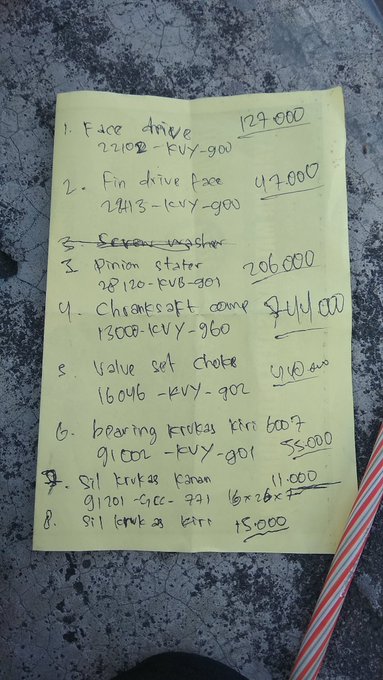 1. Face drive 127.000
22102-KVY-900
2. Fin drive face 47.000
22113-KVY-900
3. Screw washer
3. Pinion stater 206.000
28120-KVB-901
4. comp 744.000
13000-KVY-960
5. Valve set choke
16046-KVY-902
6. bearing krukas kiri 6007
91002-KVY-901 55.000
7. Sil krukas kanan 11.000
91201-GCC-771 16x26x7
8. Sil krukas kiri 15.000